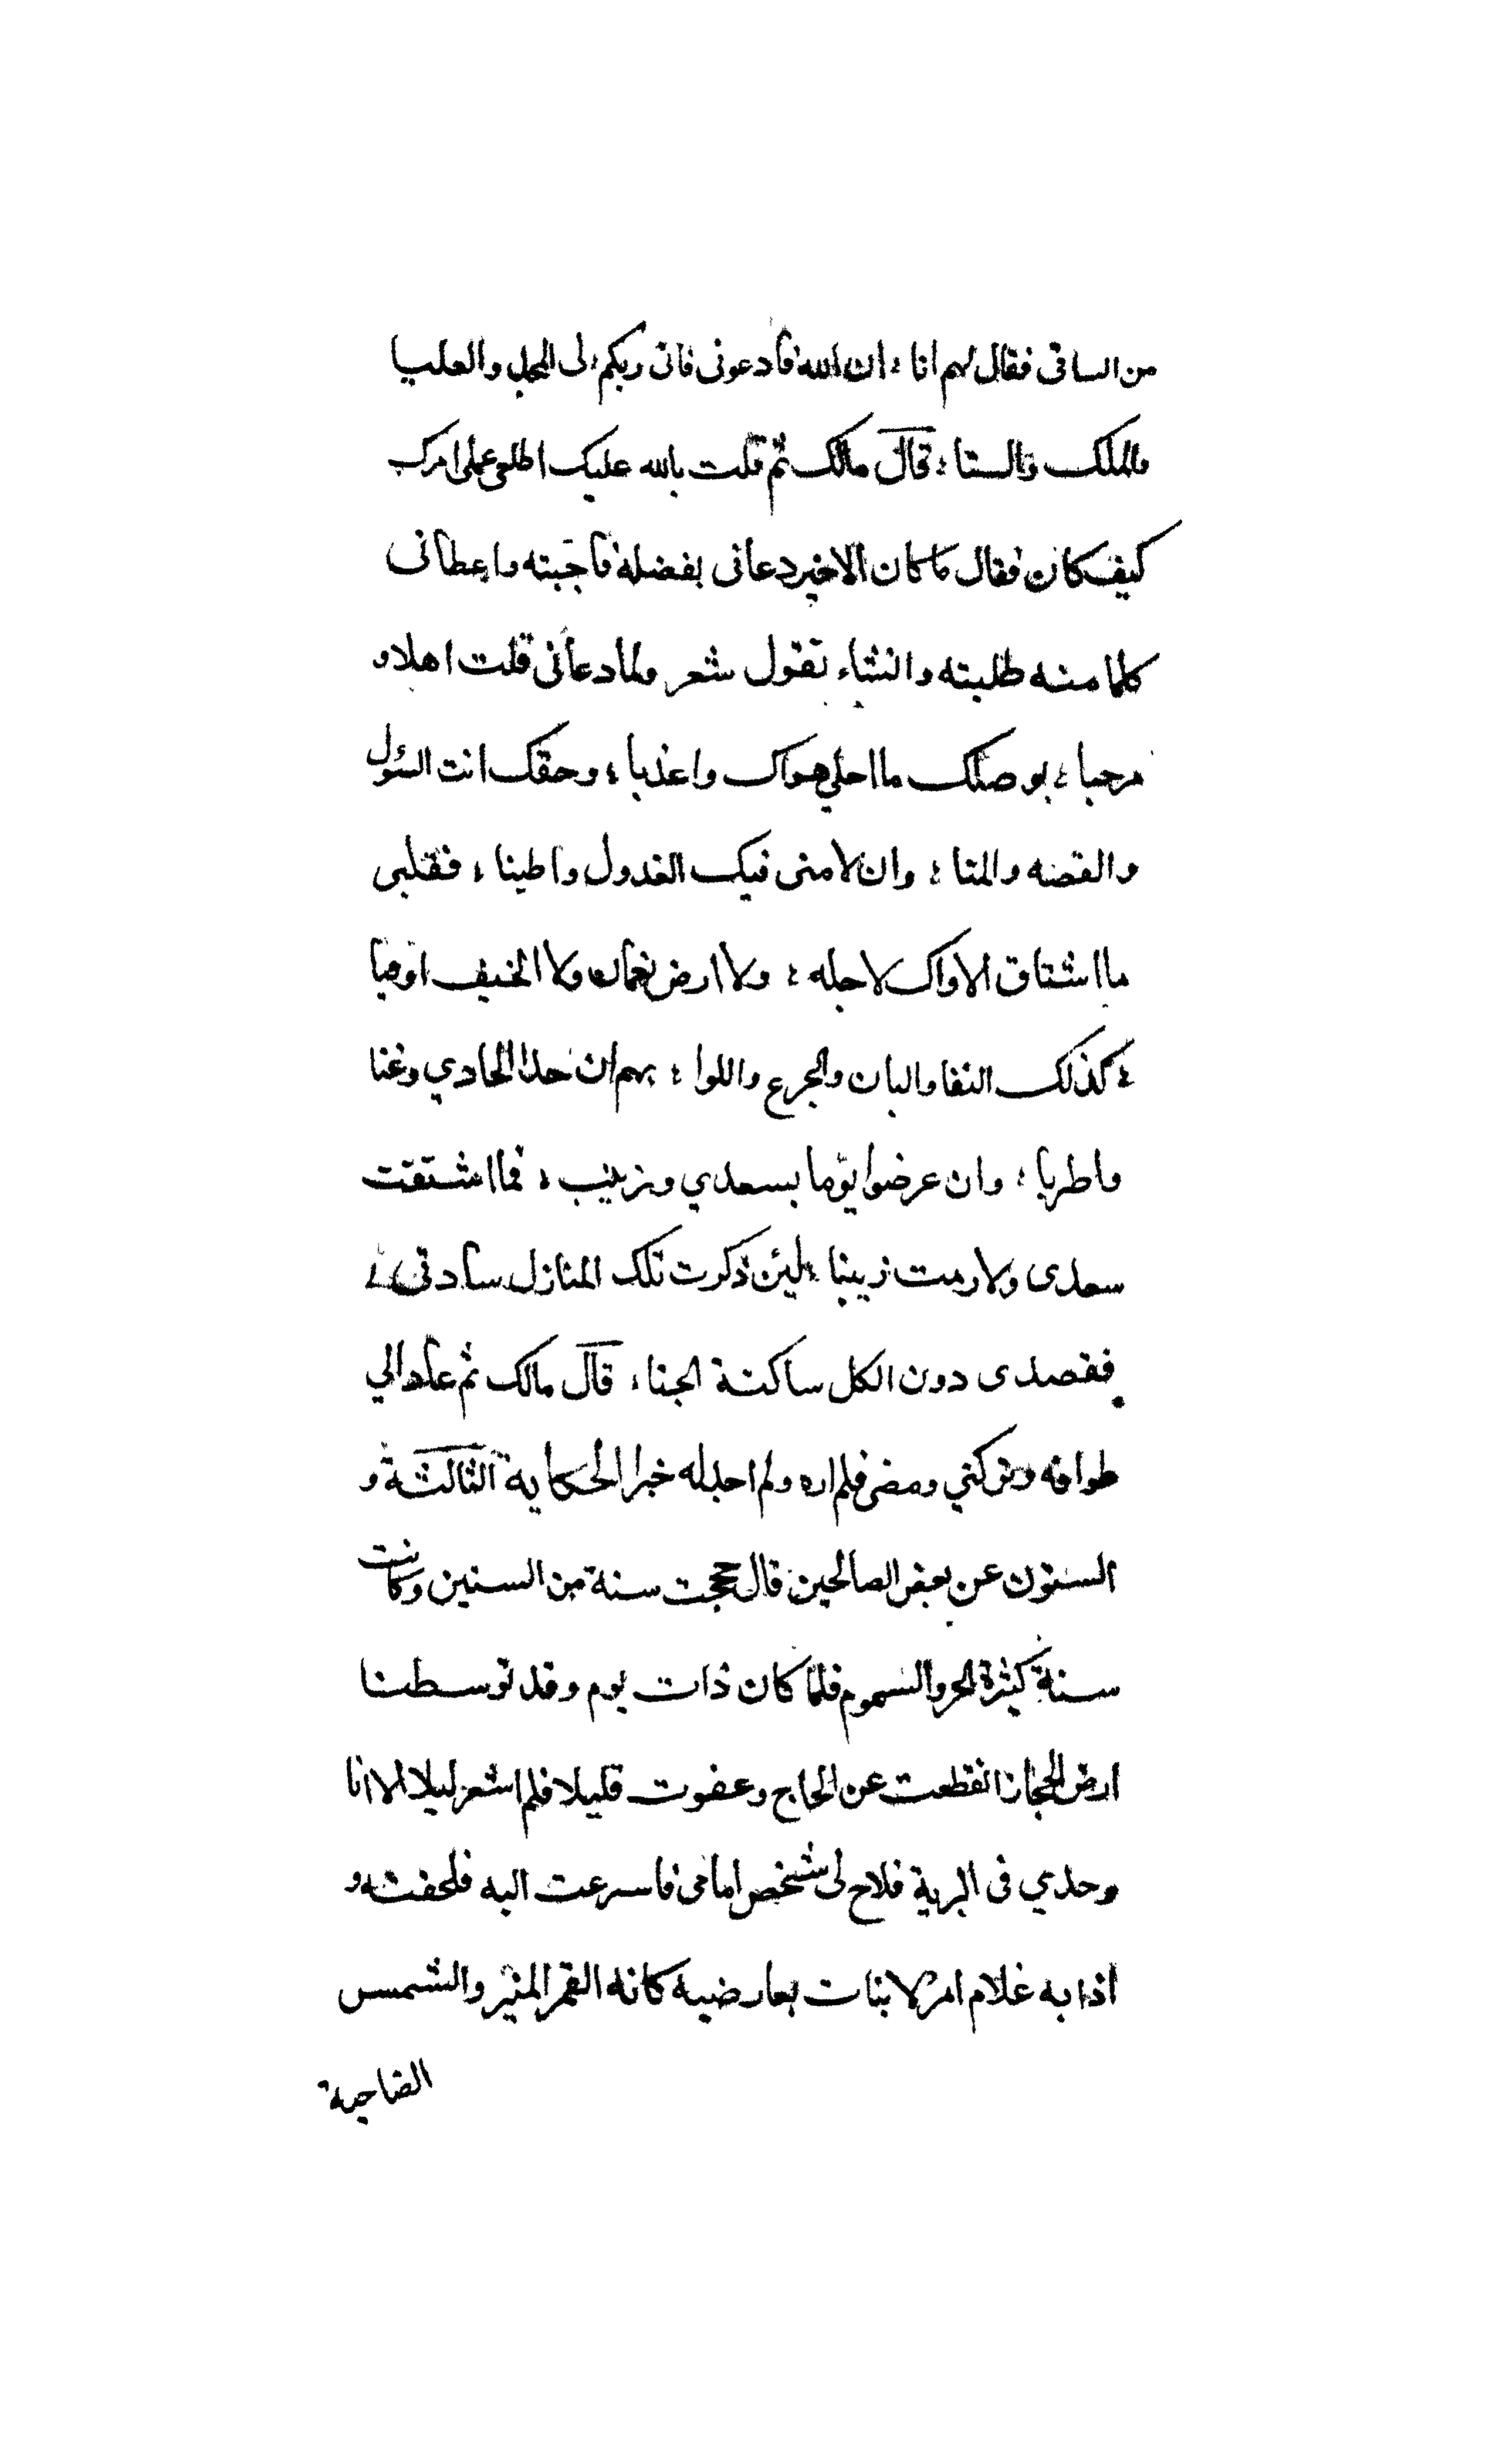 من الساقى فقال لهم انا ؛ ان الله قد دعونى فانى ربكم ؛ لى المجد والعليا
والملك والسنا ؛ قال مالك ثم قلت بالله عليك اطلعى على امرك
كيف كان فقال ما كان الاخير دعانى بفضله فاجبته واعطانى
كلما منه طلبته وانشاء يقول شعر ولما دعانى قلت اهلا و
مرحبا ؛ بوصلك ما احلى هواك واعذبا ؛ وحقك انت السؤل
والقصه والمنا ؛ وان لامنى فيك العذول واطنبا ؛ فقلبى
ما اشتاق الاراك لاجله ؛ ولا ارض نعمان ولا الخيف اوقبا
؛ كذلك النقا والبان والجرع واللوا ؛ بهم ان حدا الحادي وغنا
واطربا ؛ وان عرضوا يوما بسعدي وزينب ؛ فما اشتقت
سعدى ولا رمت زينبا ؛ لئن ذكرت تلك المنازل سادتى ؛
فقصدى دون الكل ساكنة الجنا ؛ قال مالك ثم عاد الي
طوافه وتركني ومضى فلم اره ولم اجد له خبرا الحكاية الثالثة و
الستون عن بعض الصالحين قال حججت سنة من السنين وكانت
سنة كثيرة الحر والسموم فلما كان ذات يوم وقد توسطنا
ارض الحجاز انقطعت عن الحاج وغفوت قليلا فلم اشعر ليلا الا انا
وحدي فى البرية فلاح لى شخص امامى فاسرعت اليه فلحقته و
اذا به غلام امرد لا نبات بعارضيه كانه القمر المنير والشمس
الضاحية